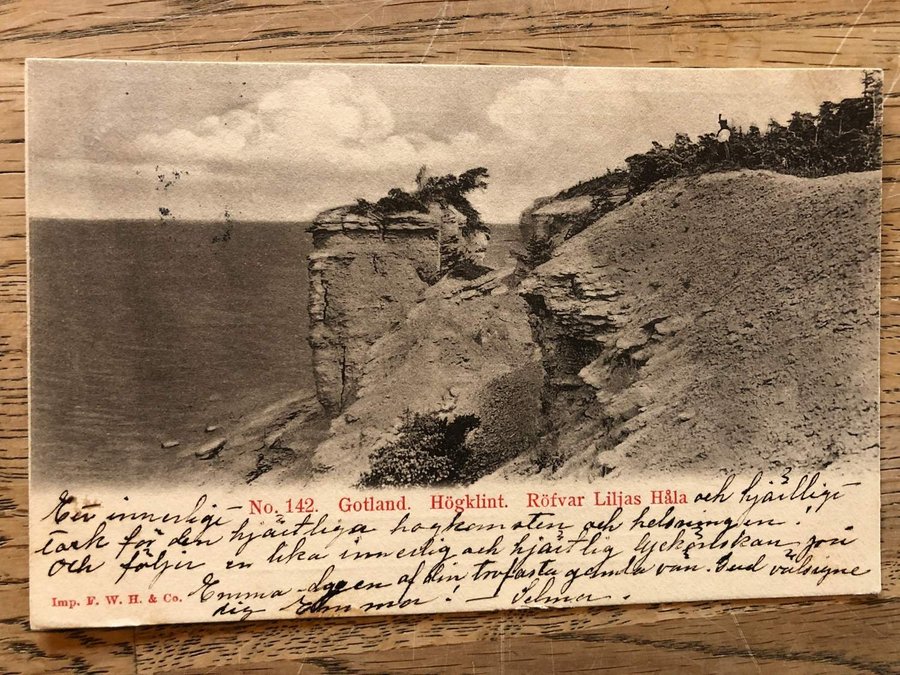 Ett innerligt och hjärtligt
No. 142. Gotland. Högklint. Röfvar Liljas Håla
tack för den hjärtliga hogkomsten och helsningen!
och följer en lika innerlig och hjärtlig lyckönskan
Emma af din trofasta gamla vän. Gud välsigne
dig Emma! — Selma.
Imp. F. W. H. & Co.